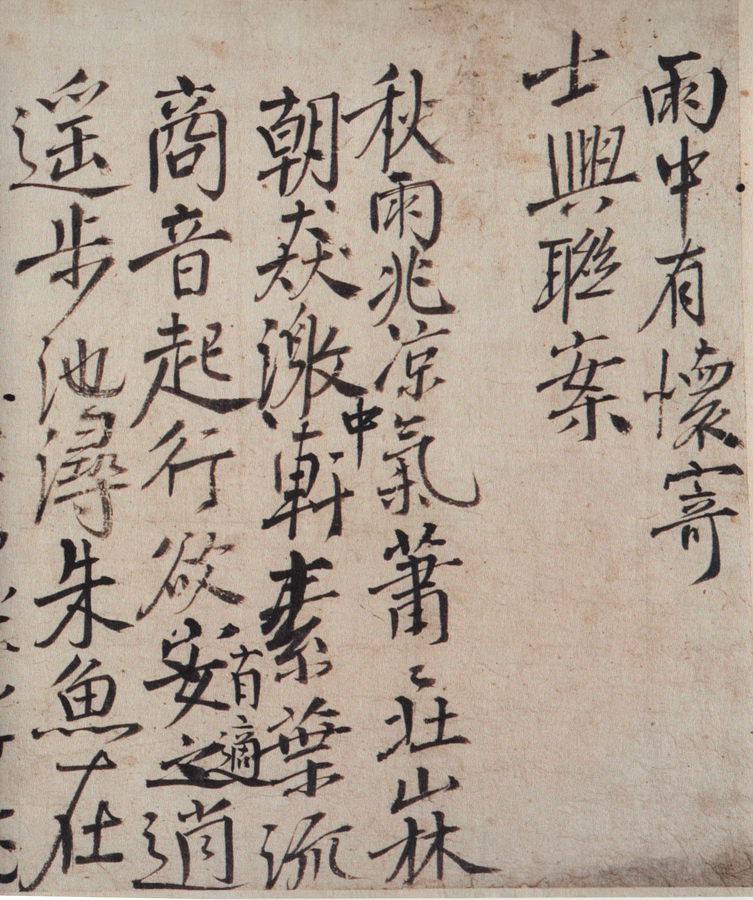 雨中有懷寄
士興聯案
秋雨兆凉氣蕭〻壮山林
朝猋激中軒素葉流
商音起行欲安之有適逍
遥步池潯朱魚在